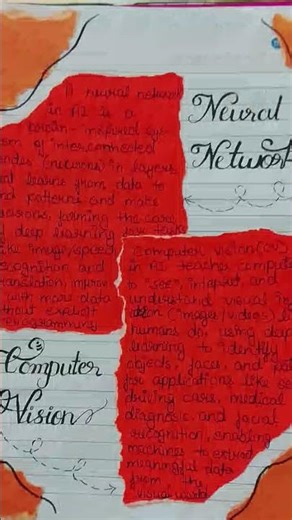 A neural network
in AI is a
brain-inspired sys
em of "interconnected
nodes (neurons)" in layers
at learns from data to
nd patterns and make
ecisions, forming the core
deep learning for tasks
ke image/speech
ecognition and
translation, improve
with more data
thout explicit
programming
Neural
Network
Computer vision (CV)
in AI teaches compute
to "see", interpret, and
understand visual in
tion (images/videos) li
humans do, using deep
learning to identify
objects, faces, and pat
for applications like se
driving cars, medical
diagnosis, and facial
recognition, enabling
machines to extract
meaningful data
from the
visual world
Computer
Vision